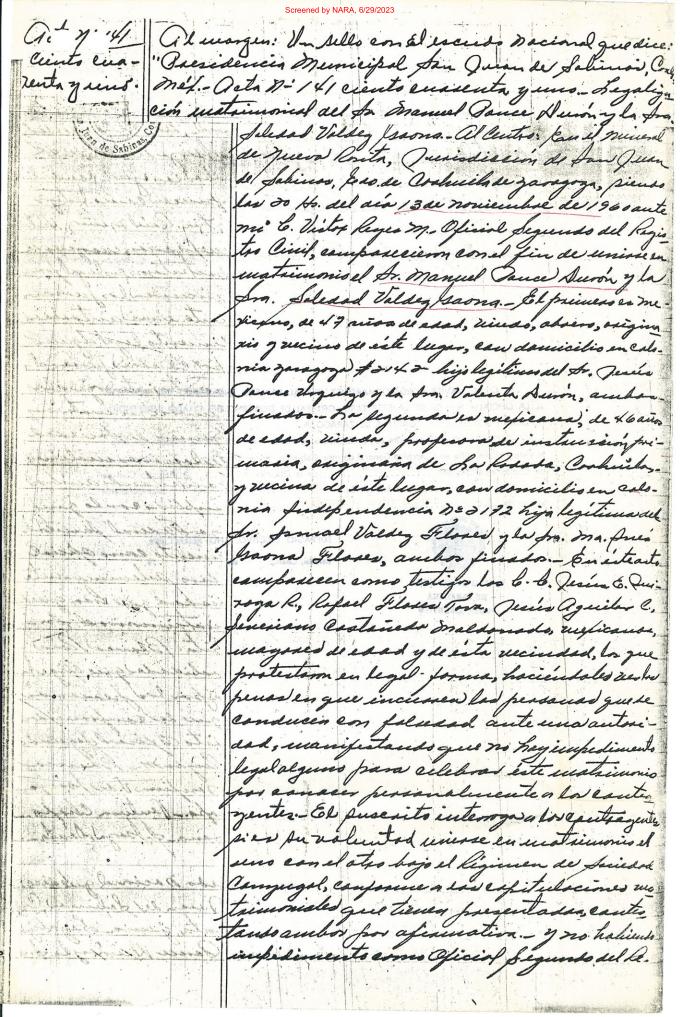 Screened by NARA, 6/29/2023
Act Nº 141
ciento cua-
renta y uno.
Juan de Sabinas, Co
Al margen: Un sello con el escudo Nacional que dice:
"Presidencia Municipal San Juan de Sabinas, Coah,
Méx.- Acta Nº 141 ciento cuarenta y uno.- Legaliza-
ción matrimonial del Sr. Manuel Ponce Durón y la Sra.
Soledad Valdez Gaona.- Al Centro: En el mineral
de Nueva Rosita, Jurisdicción de San Juan
de Sabinas, Edo. de Coahuila de Zaragoza, siendo
las 20 Hs. del día 13 de noviembre de 1960 ante
mí C. Victor Reyes M. Oficial Segundo del Regis-
tro Civil, comparecieron con el fin de unirse en
matrimonio el Sr. Manuel Ponce Durón y la
Sra. Soledad Valdez Gaona.- El primero es me-
xicano, de 47 años de edad, viudo, obrero, origina-
rio y vecino de éste lugar, con domicilio en colo-
nia Zaragoza # 2142 hijo legítimo del Sr. Jesús
Ponce y la Sra. Valenta Durón, ambos
finados.- La segunda es mexicana, de 46 años
de edad, viuda, profesora de instrucción pri-
maria, originaria de La Rosita, Coahuila,
y vecina de éste lugar, con domicilio en colo-
nia Independencia Nº 2192 hija legítima del
Sr. Ismael Valdez Flores y la Sra. Ma. Inés
Gaona Flores, ambos finados.- En éste acto
comparecen como testigos los C. C. Jesús E. Qui-
roga R., Rafael Flores Tova, Jesús Aguilar C.
Feveriano Castañeda Maldonado, mexicanos,
mayores de edad y de ésta vecindad, los que
protestaron en legal forma, haciéndoles ver las
penas en que incurren las personas que se
conducen con falsedad ante una autori-
dad, manifestando que no hay impedimento
legal alguno para celebrar éste matrimonio
por conocer personalmente a los contra-
yentes.- El suscrito interroga a los contrayentes
si es su voluntad unirse en matrimonio el
uno con el otro bajo el Régimen de Sociedad
Conyugal, conforme a las capitulaciones ma-
trimoniales que tienen presentadas, contes-
tando ambos por afirmativa.- y no habiendo
impedimento como Oficial Segundo del Re-